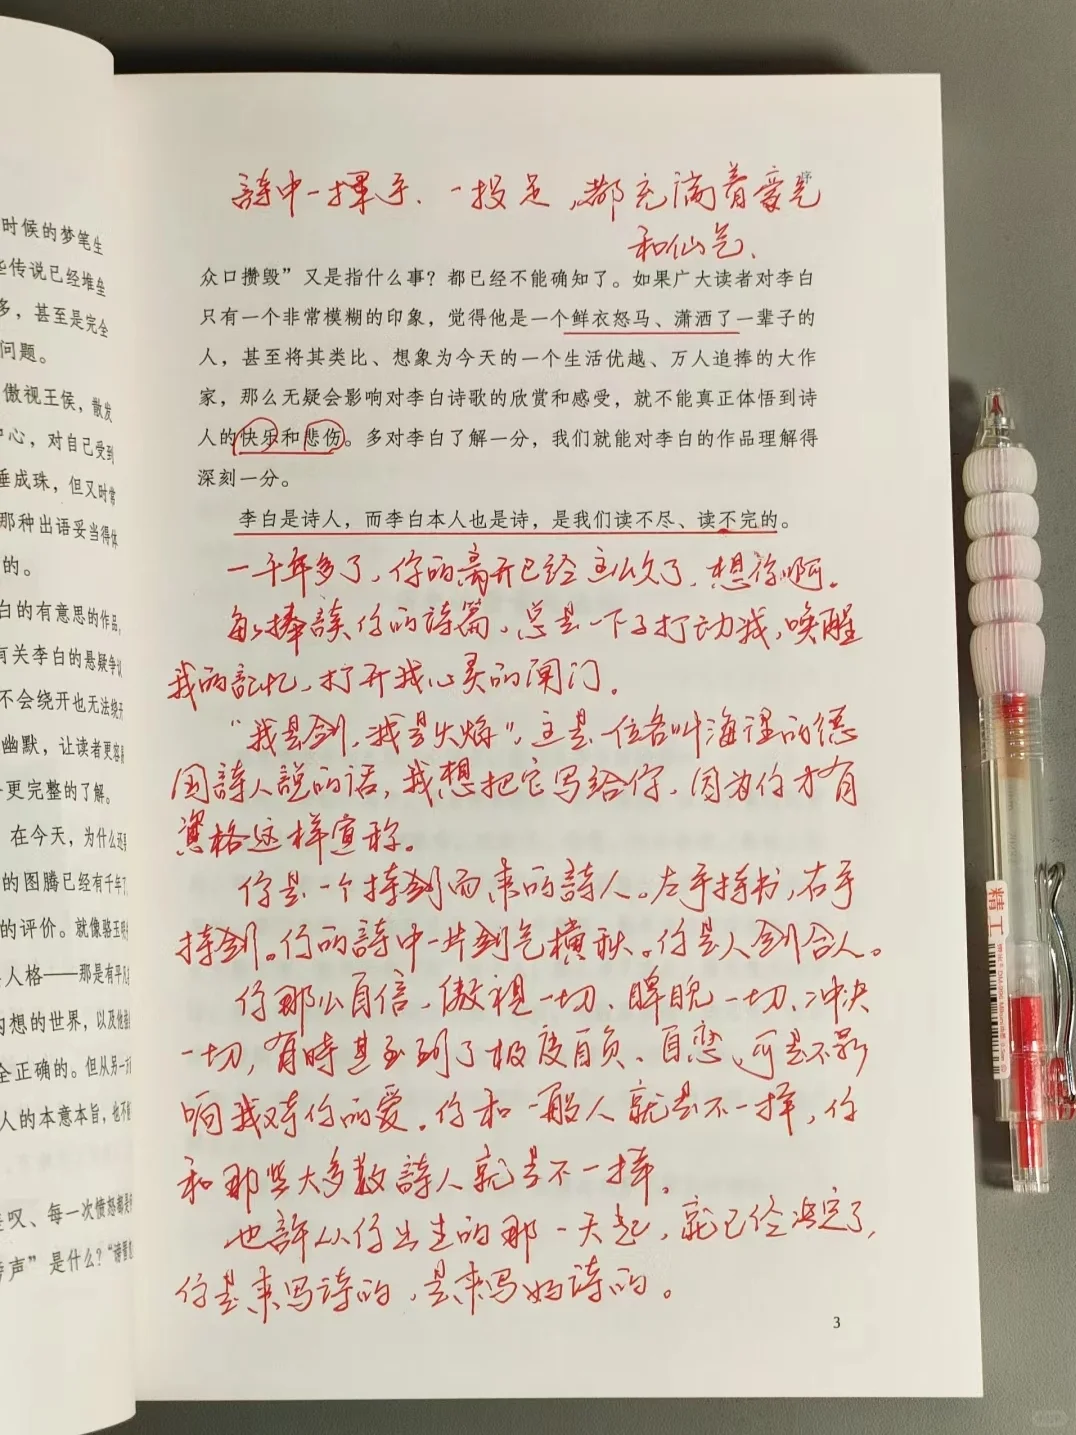 时候的梦笔生
些传说已经堆垒
多，甚至是完全
问题。
傲视王侯，散发
中心，对自己受到
垂成珠，但又时常
那种出语妥当得体
的。
白的有意思的作品，
有关李白的悬疑争议
不会绕开也无法绕开
幽默，让读者更容易
更完整的了解。
在今天，为什么还是
的图腾已经有千年了，
的评价。就像骆玉明
人格——那是有平凡
幻想的世界，以及他
全正确的。但从另一方
人的本意本旨，也不
叹、每一次愤怒都是
声”是什么？“诗
序
詩中一揮手、一投足，都充满着
和仙气、
众口攒毁”又是指什么事？都已经不能确知了。如果广大读者对李白
只有一个非常模糊的印象，觉得他是一个鲜衣怒马、潇洒了一辈子的
人，甚至将其类比、想象为今天的一个生活优越、万人追捧的大作
家，那么无疑会影响对李白诗歌的欣赏和感受，就不能真正体悟到诗
人的快乐和悲伤。多对李白了解一分，我们就能对李白的作品理解得
深刻一分。
李白是诗人，而李白本人也是诗，是我们读不尽、读不完的。
一千年多了，你的离开已经这么久了，想你啊。
每捧讀你的詩篇，总是一下子打动我，唤醒
我的記忆，打开我心灵的闸门。
“我是剑，我是火焰”，这是一位名叫海涅的德
国詩人説的话，我想把它写给你，因为你才有
資格这样宣称。
你是一个持剑而来的詩人。左手持书，右手
持剑。你的詩中一片剑气横秋。你是人剑合人。
你那么自信，傲视一切、睥睨一切、冲决
一切，有時甚至到了极度自负、自恋，可是不影
响我对你的爱。你和一般人就是不一样，你
和那些大多数詩人就是不一样。
也許从你出生的那一天起，就已经决定了，
你是来写诗的，是来写好诗的。
3
精工